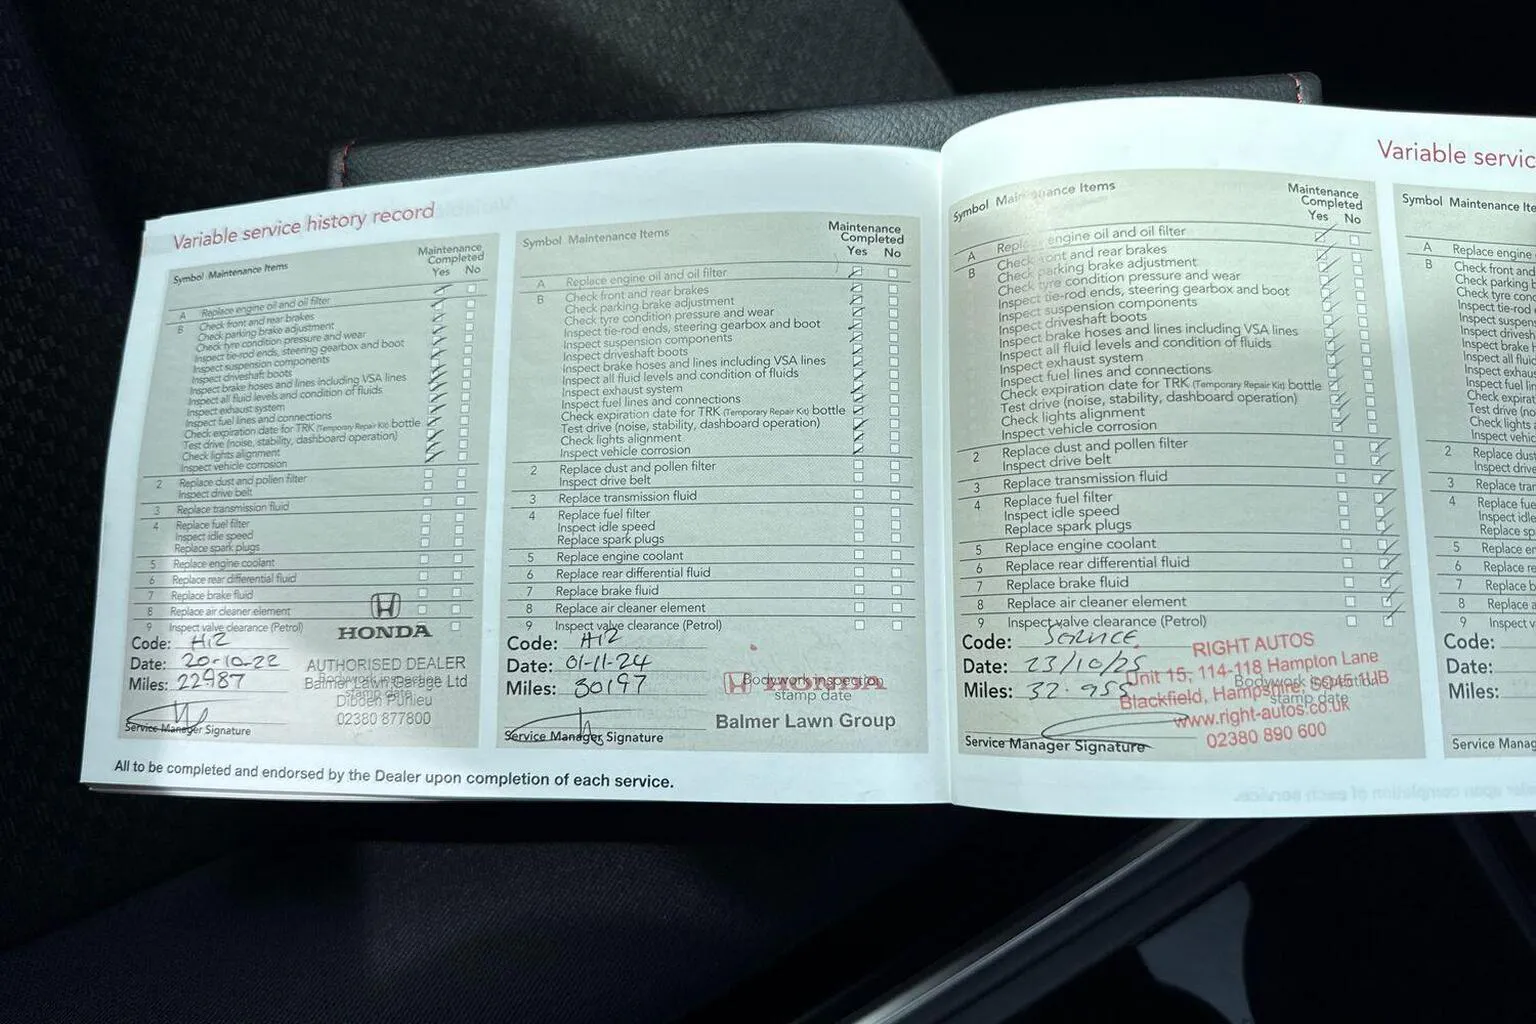 Variable service history record
Symbol Maintenance Items
Maintenance
Completed
Yes No
A Replace engine oil and oil filter
B Check front and rear brakes
Check parking brake adjustment
Check tyre condition pressure and wear
Inspect tie-rod ends, steering gearbox and boot
Inspect suspension components
Inspect driveshaft boots
Inspect brake hoses and lines including VSA lines
Inspect all fluid levels and condition of fluids
Inspect exhaust system
Inspect fuel lines and connections
Check expiration date for TRK (Temporary Repair Kit) bottle
Test drive (noise, stability, dashboard operation)
Check lights alignment
Inspect vehicle corrosion
2 Replace dust and pollen filter
Inspect drive belt
3 Replace transmission fluid
4 Replace fuel filter
Inspect idle speed
Replace spark plugs
5 Replace engine coolant
6 Replace rear differential fluid
7 Replace brake fluid
8 Replace air cleaner element
9 Inspect valve clearance (Petrol)
Code: A12
Date: 20-10-22
Miles: 22987
Service Manager Signature
HONDA
AUTHORISED DEALER
Balmer Lawn Garage Ltd
Bodywork inspection
stamp date
Dibden Purlieu
02380 877800
Symbol Maintenance Items
Maintenance
Completed
Yes No
A Replace engine oil and oil filter
B Check front and rear brakes
Check parking brake adjustment
Check tyre condition pressure and wear
Inspect tie-rod ends, steering gearbox and boot
Inspect suspension components
Inspect driveshaft boots
Inspect brake hoses and lines including VSA lines
Inspect all fluid levels and condition of fluids
Inspect exhaust system
Inspect fuel lines and connections
Check expiration date for TRK (Temporary Repair Kit) bottle
Test drive (noise, stability, dashboard operation)
Check lights alignment
Inspect vehicle corrosion
2 Replace dust and pollen filter
Inspect drive belt
3 Replace transmission fluid
4 Replace fuel filter
Inspect idle speed
Replace spark plugs
5 Replace engine coolant
6 Replace rear differential fluid
7 Replace brake fluid
8 Replace air cleaner element
9 Inspect valve clearance (Petrol)
Code: A12
Date: 01-11-24
Miles: 30197
Service Manager Signature
HONDA
Bodywork inspection
stamp date
Balmer Lawn Group
All to be completed and endorsed by the Dealer upon completion of each service.
Symbol Maintenance Items
Maintenance
Completed
Yes No
A Replace engine oil and oil filter
B Check front and rear brakes
Check parking brake adjustment
Check tyre condition pressure and wear
Inspect tie-rod ends, steering gearbox and boot
Inspect suspension components
Inspect driveshaft boots
Inspect brake hoses and lines including VSA lines
Inspect all fluid levels and condition of fluids
Inspect exhaust system
Inspect fuel lines and connections
Check expiration date for TRK (Temporary Repair Kit) bottle
Test drive (noise, stability, dashboard operation)
Check lights alignment
Inspect vehicle corrosion
2 Replace dust and pollen filter
Inspect drive belt
3 Replace transmission fluid
4 Replace fuel filter
Inspect idle speed
Replace spark plugs
5 Replace engine coolant
6 Replace rear differential fluid
7 Replace brake fluid
8 Replace air cleaner element
9 Inspect valve clearance (Petrol)
Code: Service
Date: 23/10/25
Miles: 32.955
Service Manager Signature
RIGHT AUTOS
Unit 15, 114-118 Hampton Lane
Blackfield, Hampshire, SO45 1UB
Bodywork inspection
stamp date
www.right-autos.co.uk
02380 890 600
Variable servic
Symbol Maintenance Ite
A Replace engine
B Check front and
Check parking b
Check tyre cond
Inspect tie-rod e
Inspect suspen
Inspect drivesh
Inspect brake h
Inspect all fluid
Inspect exhaus
Inspect fuel lin
Check expirat
Test drive (no
Check lights a
Inspect vehic
2 Replace dust
Inspect drive
3 Replace tran
4 Replace fue
Inspect idle
Replace sp
5 Replace en
6 Replace re
7 Replace b
8 Replace a
9 Inspect v
Code:
Date:
Miles:
Service Manag